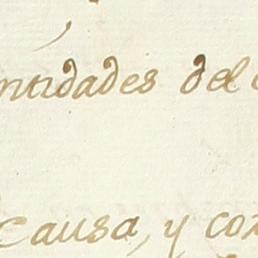 ntidades del
causa, y con